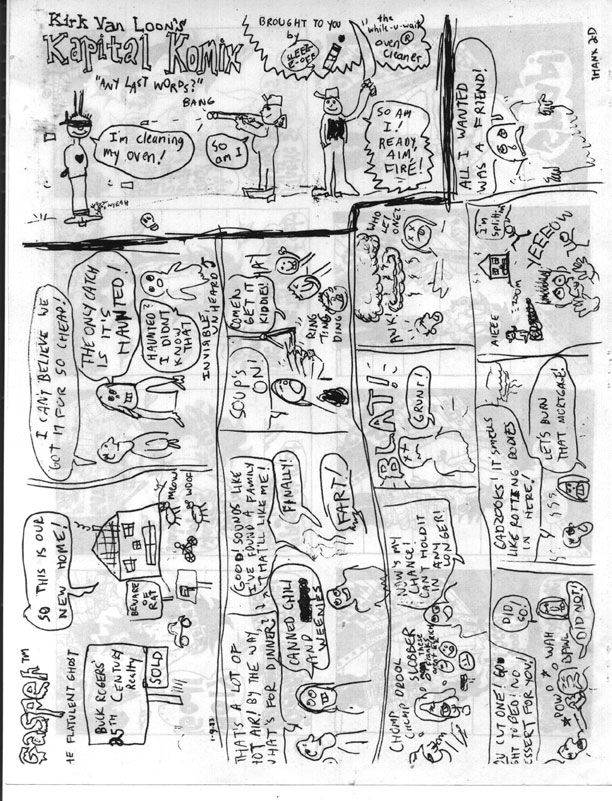 Kirk Van Loon's
Kapital Komix
BROUGHT TO YOU
by
the
while-u-wait
oven
cleaner
"ANY LAST WORDS?"
I'm cleaning
my oven!
BANG
SO
am I
SO AM
I!
READY,
AIM,
FIRE!
™
THE FLATULENT GHOST
BUCK ROGERS'
25TH CENTURY
Realty
SOLD
SO THIS IS OUR
NEW HOME!
BEWARE
OF
RAT
MEOW
WOOF
I CAN'T BELIEVE WE
GOT IT FOR SO CHEAP!
THE ONLY CATCH
IS IT'S
HAUNTED!
HAUNTED?
I DIDN'T
KNOW THAT
INVISIBLE,
UNHEARD
THAT'S A LOT OF
HOT AIR! BY THE WAY,
WHAT'S FOR DINNER?
CANNED CHILI
AND
WEENIES
GOOD! SOUNDS LIKE
I'VE FOUND A FAMILY
THAT'LL LIKE ME!
FINALLY!
FART!
SOUP'S
ON!
COME N
GET IT
KIDDIES!
YA!
RING
TING
DING
CHOMP DROOL
CHOMP SLOBBER
NOW'S MY
CHANCE!
CAN'T HOLD IT
IN ANY
LONGER!
BLAT!
GRUNT!
WHO
LET
ONE?
YOU CUT ONE! GO
RIGHT TO BED! NO
DESSERT FOR YOU!
DID
SO!
DID NOT!
POW
WHM
GADZOOKS! IT SMELLS
LIKE ROTTING BODIES
IN HERE!
LET'S BURN
THAT MORTGAGE!
I'm
splittin'
AIEEE
ZOOM
YEEEEOW
ALL I WANTED
WAS A FRIEND!